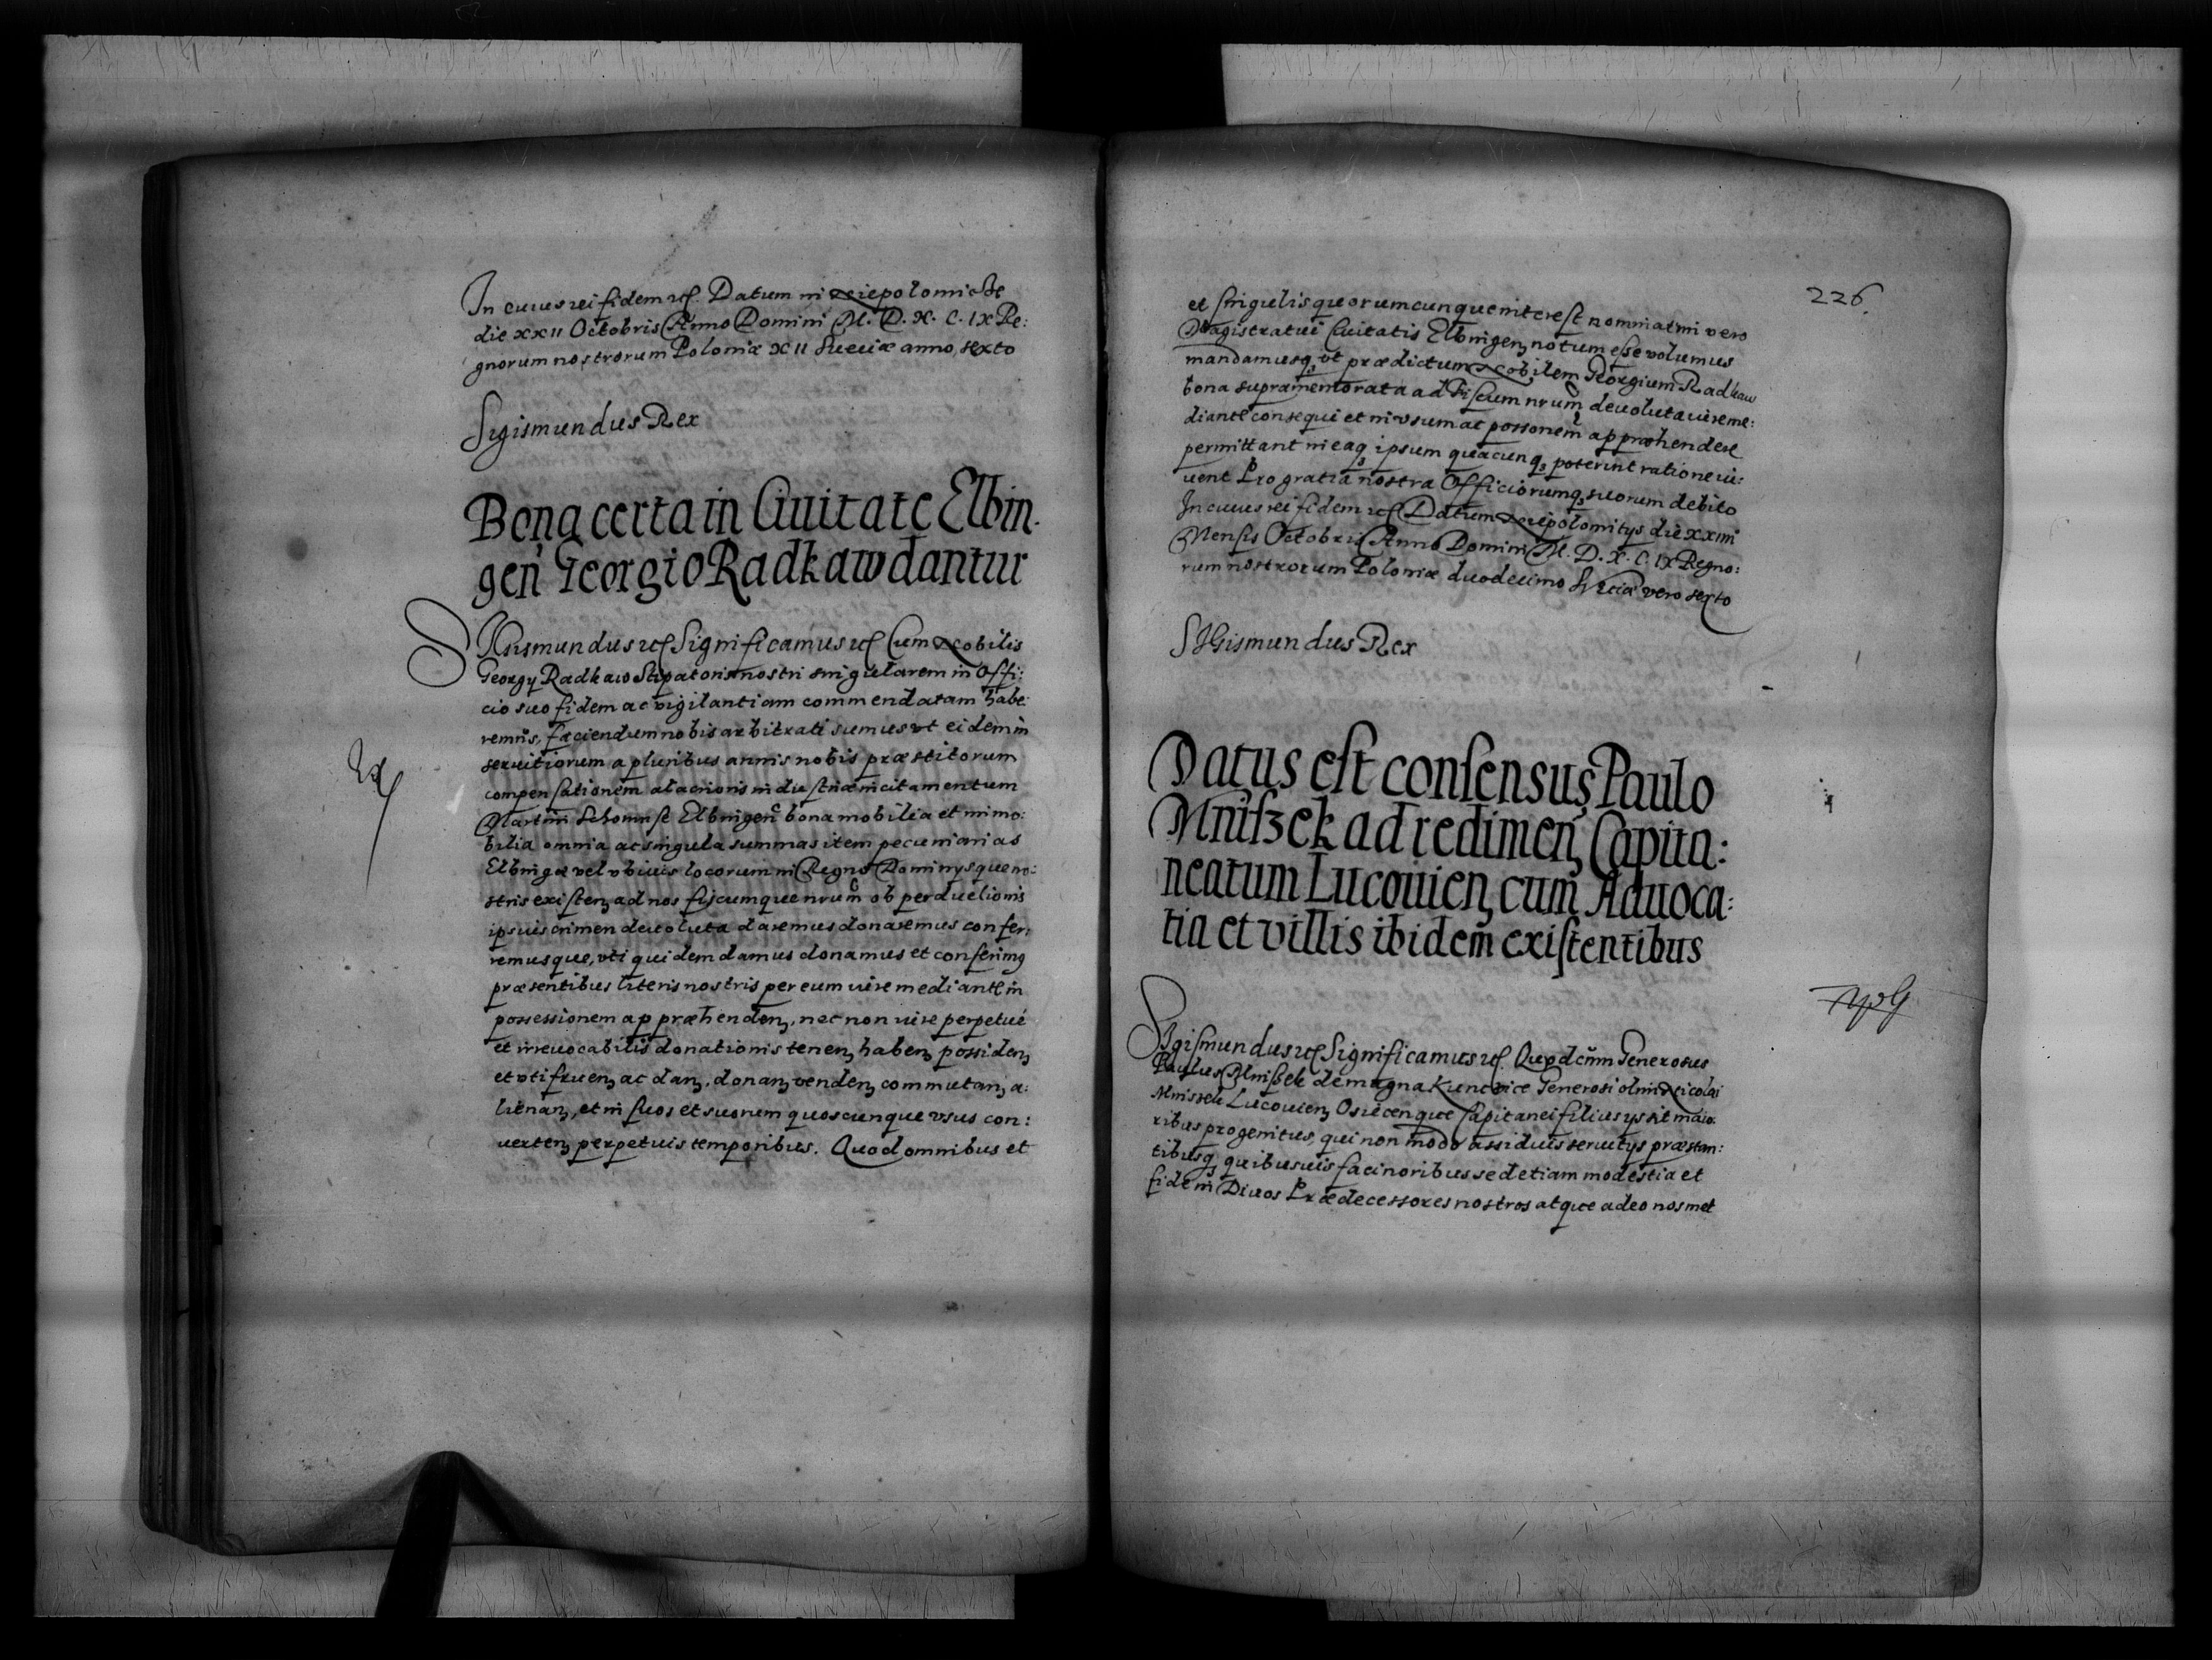 In cuius rei fidem etc. Datum in Niepolomicze
die XXII Octobris Anno Domini M. D. X. C. IX Re:
gnorum nostrorum Poloniæ XII Sueciæ anno sexto
Sigismundus Rex
Bona certa in Ciuitate Elbin.
gen Georgio Radkaw dantur
Sigismundus etc Significamus etc Cum Nobilis
Georgy Radkaw Stipatoris nostri singularem in Offi:
cio suo fidem ac vigilantiam commendatam habe:
remus, faciendum nobis arbitrati sumus vt eidem in
seruitiorum a pluribus annis nobis præstitorum
compensationem alacrioris industriæ incitamentum
Martini Schonnse Elbingen bona mobilia et immo:
bilia omnia ac singula summas item pecuniarias
Elbingæ vel vbiuis locorum in Regno Dominysque no:
stris existen ad nos fiscumque nrum ob perduelionis
ipsius crimen deuoluta daremus donaremus confer:
remusque, vti quidem damus donamus et conferimus
præsentibus literis nostris per eum uise mediante in
possessionem appræhenden, nec non uire perpetuè
et irreuocabilis donationis tenen haben possiden
et vtifruen ac dan, donan venden commutan a:
lienan, et in suos et suorum quoscunque vsus con:
uerten perpetuis temporibus. Quod omnibus et
226.
et singulis quorumcunque interest nominatim vero
Magistratui Ciuitatis Elbingen notum esse volumus
mandamusq, vt prædictum Nobilem Georgium Radkaw
bona supramemorata ad Fiscum nrum deuoluta uire me:
diante consequi et in vsum ac possonem appræhendere
permittant in eaq ipsum quacunq poterint ratione iu:
uent Pro gratia nostra Officiorumq suorum debito
In cuius rei fidem etc Datum Niepolomitys die XXIIII
Mensis Octobris Anno Domini M. D. X. C. IX Regno:
rum nostrorum Poloniæ duodecimo Sueciæ vero sexto
SIGismundus Rex
Datus est consensus Paulo
Mniszek ad redimen Capita:
neatum Lucouien cum Aduoca:
tia et villis ibidem existentibus
Sigismundus etc Significamus etc. Quod cum Generosus
Paulus Mnißek de magna Kunczice Generosi olim Nicolai
Mnissek Lucouien Osiecenque Capitanei filius ys sit maio:
ribus progenitus, qui non modo assiduis seruitys præstan:
tibusq quibusuis facinoribus sed etiam modestia et
fidem Diuos Prædecessores nostros atque adeo nosmet